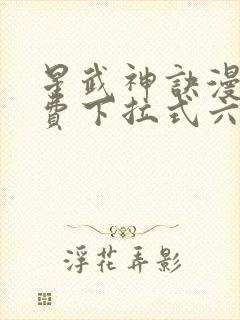 星武神訣漫
費下拉式六
浮花弄影